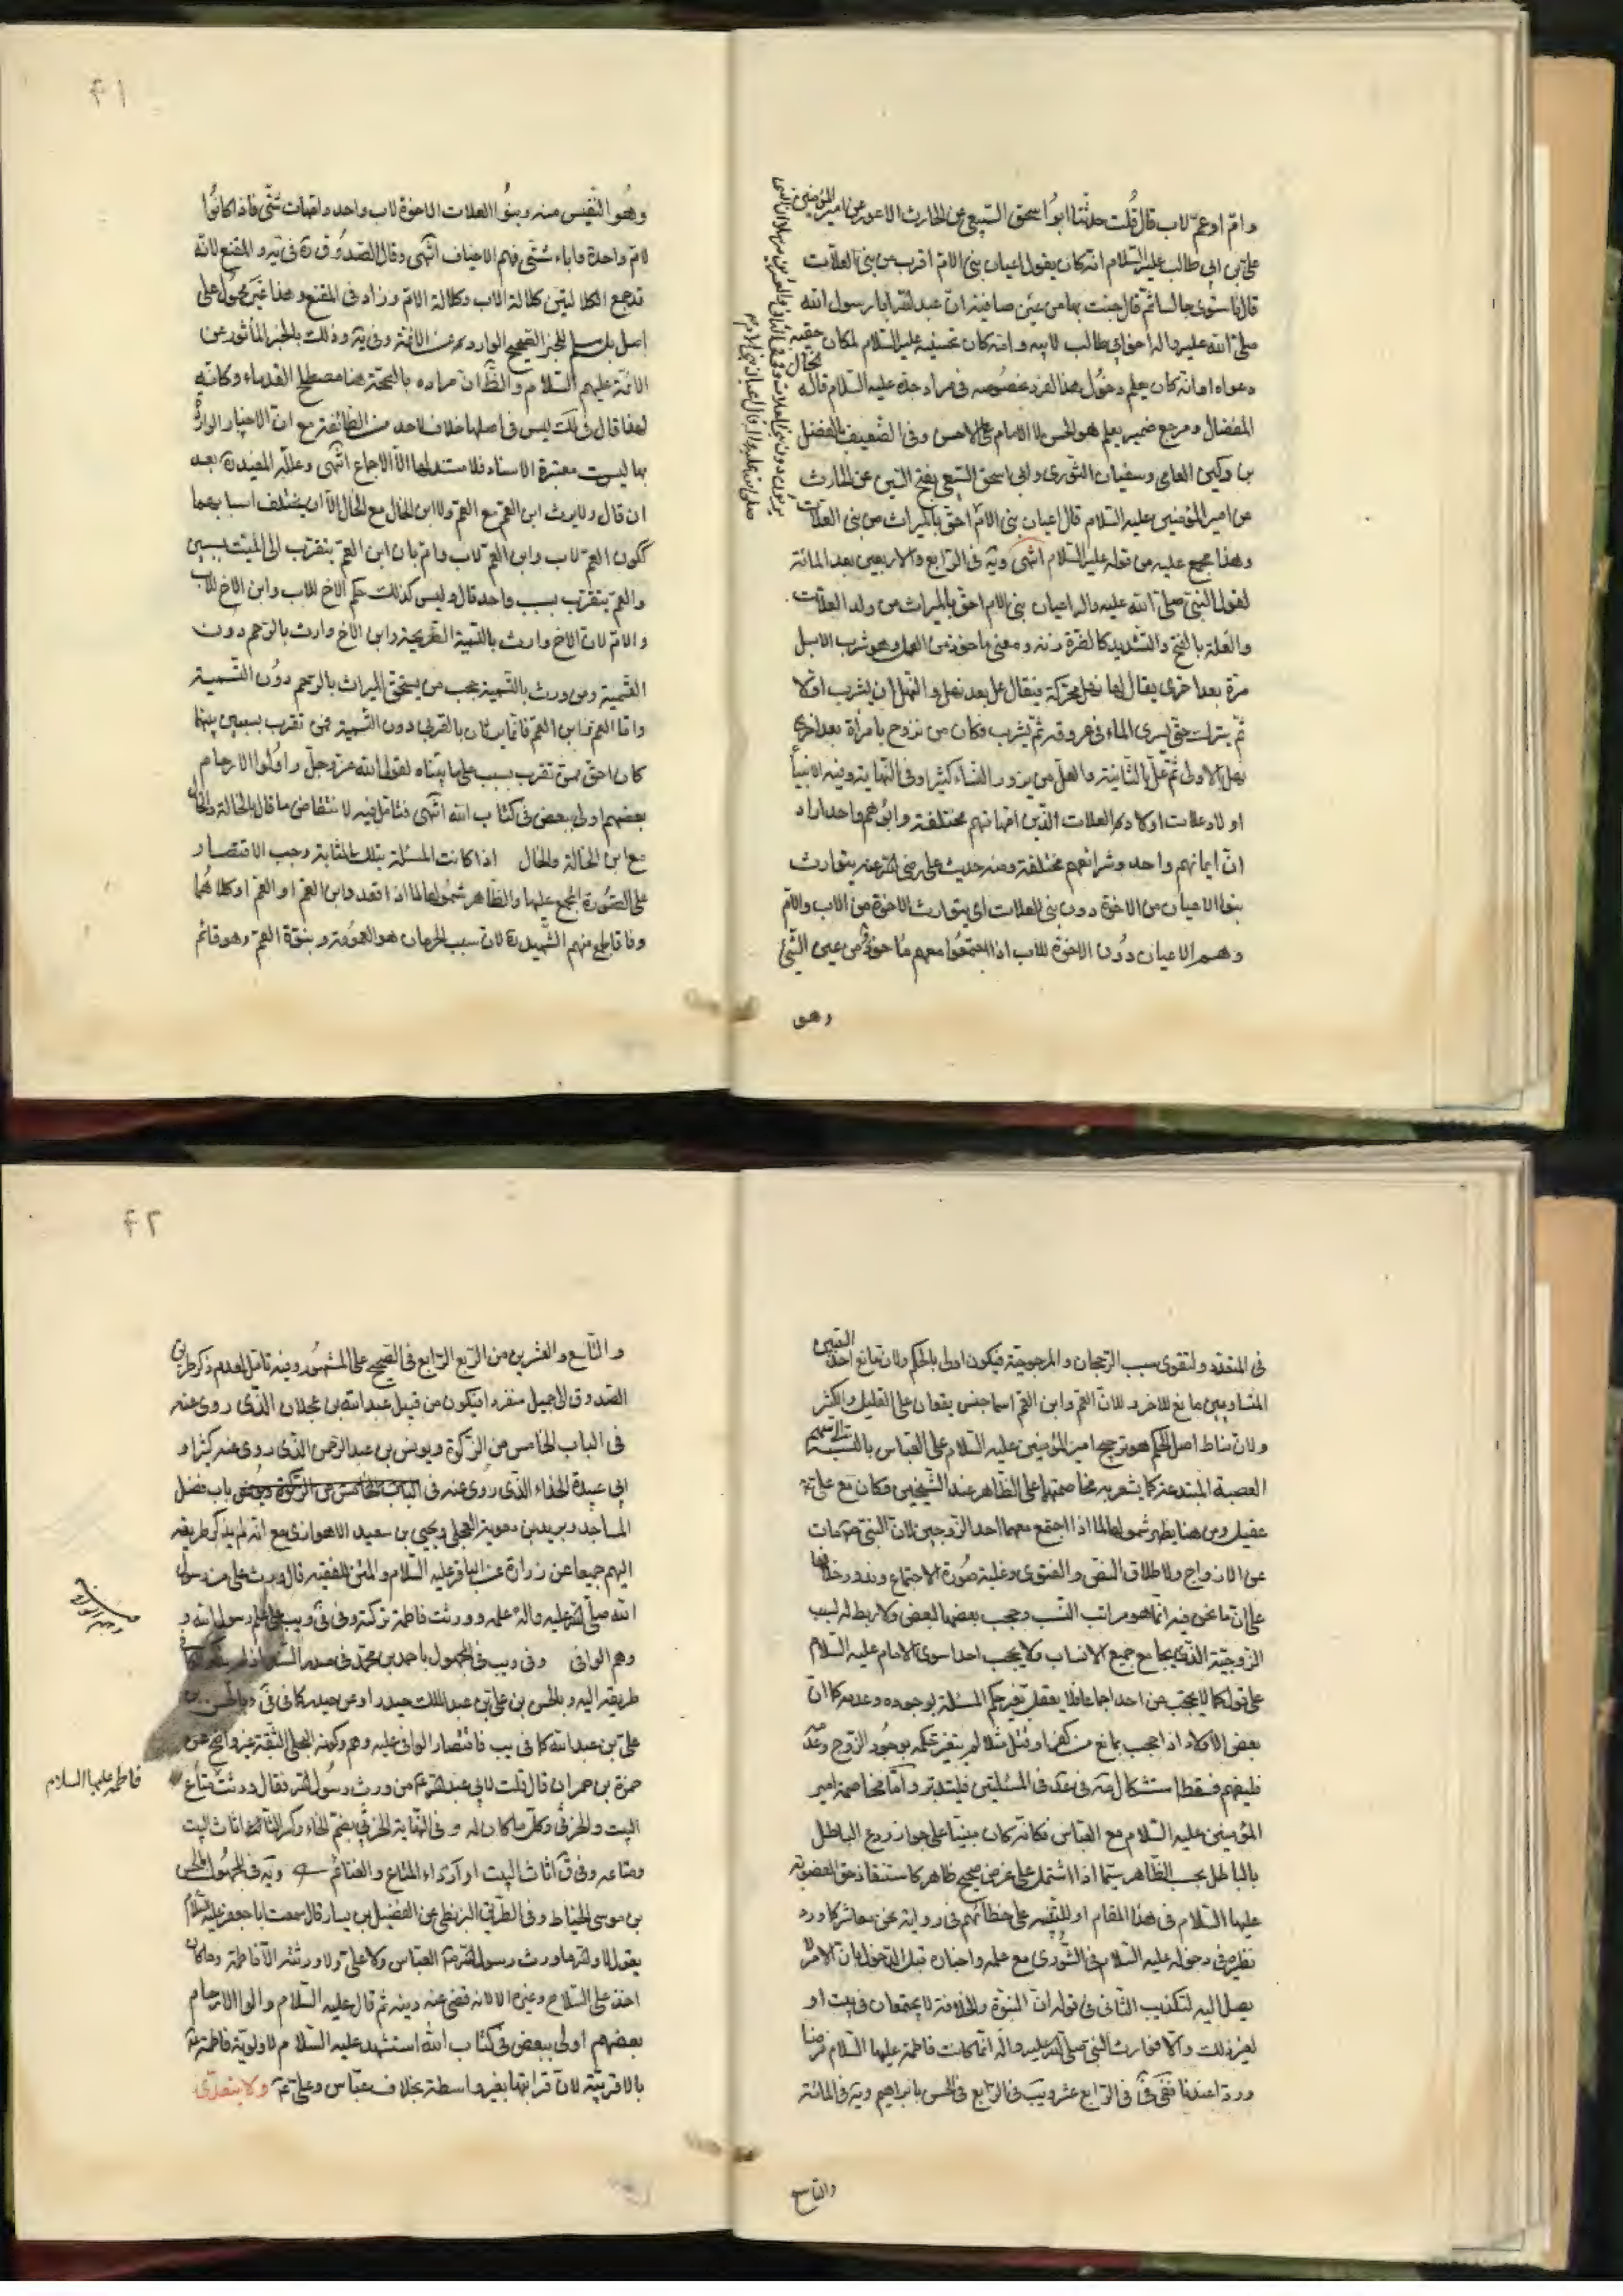 وام او عم لاب قال قلت حدثنا ابو اسحق السبيعي عن الحارث الاعور عن امير المؤمنين
علي بن ابي طالب عليه السلام انه كان يقول اعيان بني الام اقرب من بني العلات
قال فاستوى جالسا ثم قال جئت بها من عين صافية ان عبد الله ابا رسول الله
صلى الله عليه واله اخو ابي طالب لابيه وامه كان تحسينه عليه السلام لمكان حقية
دعواه او انه كان يعلم دخول هذا الفرد بخصوصه في مراد جده عليه السلام قاله
المفضال ومرجع ضمير يعلم هو الحسن لا الامام على الاحسن وفي الضعيف بالفضل
بن دكين العامي وسفيان الثوري وابي اسحق السبيعي بفتح السين عن الحارث
عن امير المؤمنين عليه السلام قال اعيان بني الام احق بالميراث من بني العلات
وهذا مجمع عليه من قوله عليه السلام انتهى ويه في الرابع والاربعين بعد المائة
لقول النبي صلى الله عليه واله اعيان بني الام احق بالميراث من ولد العلات
والعلة بالفتح والتشديد كالضرة زنة ومعنى ماخوذ من العلل وهو شرب الابل
مرة بعد اخرى يقال لها نهل محركة فيقال عل بعد نهل والنهل ان يشرب اولا
ثم يترك حتى يسري الماء في عروقه ثم يشرب فكان من تزوج بامرأة بعد اخرى
نهل بالاولى ثم عل بالثانية والعل من يزور النساء كثيرا وفي النهاية وفيه الانبيأ
اولاد علات اولاد العلات الذين امهاتهم مختلفة وابوهم واحد اراد
ان ايمانهم واحد وشرائعهم مختلفة ومنه حديث علي رضي الله عنه يتوارث
بنوا الاعيان من الاخوة دون بني العلات اي يتوارث الاخوة من الاب والام
وهم الاعيان دون الاخوة للاب اذا اجتمعوا معهم ماخوذ من عين الشئ
وهو
٤١
وهو النفيس منه وبنوا العلات الاخوة لاب واحد وامهات شتى فاذا كانوا
لام واحدة واباء شتى فهم الاخياف انتهى وقال الصدوق ره في يه والمقنع لانه
قد جمع الكلالتين كلالة الاب وكلالة الام وزاد في المقنع وهذا غير محمول على
اصل بل مسلم للخبر الصحيح الوارد عن الائمة وفي يه وذلك بالخبر المأثور عن
الائمة عليهم السلام والظ ان مراده بالصحة هنا مصطلح القدماء وكانه
لهذا قال في لك ليس في اصلها خلاف لاحد من الطائفة مع ان الاخبار الواردة
بها ليست معتبرة الاسناد فلا مستند لها الا الاجماع انتهى وعلله المفيد ره بعد
ان قال ولا يرث ابن العم مع العم ولا ابن الخال مع الخال الا ان يختلف اسبابهما
ككون العم لاب وابن العم لاب وام بان ابن العم يتقرب الى الميت بسببين
والعم يتقرب بسبب واحد قال وليس كذلك حكم الاخ للاب وابن الاخ للاب
والام لان الاخ وارث بالتسمية الصريحة وابن الاخ وارث بالرحم دون
التسمية ومن ورث بالتسمية حجب من يستحق الميراث بالرحم دون التسمية
واما العم وابن العم فانما يرثان بالقربى دون التسمية فمن تقرب بسببين منهما
كان احق ممن تقرب بسبب على ما بيناه لقول الله عز وجل واولوا الارحام
بعضهم اولى ببعض في كتاب الله انتهى فتامل فيه لانتقاض ما قال بالخالة والخال
مع ابن الخالة والخال اذا كانت المسئلة بتلك المثابة وجب الاقتصار
على الصورة المجمع عليها والظاهر شمولها لما اذا تعدد ابن العم او العم او كلاهما
وفاقا لجمع منهم الشهيد ره لان سبب الحرمان هو العمومة وبنوة العم وهو قائم
في المتعدد ولتقوي سبب الرجحان والمرجوحية فيكون اولى بالحكم ولان مانع احد
المتساويين مانع للاخر ولان العم وابن العم اسما جنس يقعان على القليل والكثير
ولان مناط اصل الحكم هو ترجيح امير المؤمنين عليه السلام على العباس بالنسبة
العصبة المبتدعة كما يشعر به مخاصمتهما على الظاهر عند الشيخين فكان مع علي ع
عقيل ومن هنا يظهر شمولها لما اذا اجتمع معهما احد الزوجين لان النبي ص مات
عن الازواج ولاطلاق النص والفتوى وغلبة صورة الاجتماع وندور خلافها
على ان ما نحن فيه انما هو مراتب النسب وحجب بعضها لبعض ولا ربط له بسبب
الزوجية الذي يجامع جميع الانساب ولا يحجب احدا سوى الامام عليه السلام
على قول كما لا يحجب من احد اجماعا فلا يعقل تغير حكم المسئلة بوجوده وعدمه كما ان
بعض الاولاد اذا حجب بمانع من كفر او قتل مثلا لم يتغير حكمه بوجود الزوج وعدمه
فليفهم فسقط استشكال مه في عد في المسئلتين فليتدبر واما مخاصمة امير
المؤمنين عليه السلام مع العباس فكانه كان مبنيا على جواز ردع الباطل
بالباطل بحسب الظاهر سيما اذا اشتمل على غرض صحيح ظاهر كاستنقاذ حق المغصوبة
عليها السلام في هذا المقام او للتنبيه على خطائهم في رواية نحن معاشر كما ورد
نظيره في دخوله عليه السلام في الشورى مع علمه واخباره قبل الدخول بان الامر لا
يصل اليه لتكذيب الثاني في قوله ان النبوة والخلافة لا يجتمعان في بيت او
لغير ذلك والا فوارث النبي صلى الله عليه واله انما كانت فاطمة عليها السلام فرضا
وردا عندنا ففي في في الرابع عشر ويب في الرابع في الحسن بابراهيم ويه في المائة
والتاسع
٤٢
والتاسع والعشرين من الربع الرابع في الصحيح على المشهور وفيه تامل لعدم ذكر طريق
الصدوق الى جميل منفردا فيكون من قبيل عبد الله بن عجلان الذي روى عنه
في الباب الخامس من الزكوة ويونس بن عبد الرحمن الذي روى عنه كثيرا و
ابي عبيدة الحذاء الذي روى عنه في باب فضل
المساجد وبريد بن معوية العجلي ويحيى بن سعيد الاهوازي مع انه لم يذكر طريقه
اليهم جميعا عن زرارة عن الباقر عليه السلام والمتن للفقيه قال ورث علي من رسول
الله صلى الله عليه واله علمه وورثت فاطمة تركته وفي في ويب علي علم رسول الله و
وهم الوافي وفي ويب في المجهول باحمد بن محمد في صدر السند
طريقه اليه وبالحسن بن علي بن عبد الملك حيدر او عن حيدر كما في في وبالحسن بن
علي بن عبد الله كما في يب فاقتصار الوافي عليه وهم وكونه البجلي الثقة غير واضح عن
حمزة بن حمران قال قلت لابي عبد الله ع من ورث رسول الله فقال ورثت متاع
البيت والخرثي وكل ما كان له وفي النهاية الخرثي بضم الخاء وكسر الثاء اثاث البيت
ومتاعه وفي ق اثاث البيت او اردأ المتاع والغنائم ويه في المجهول بالحسن
بن موسى الحناط وفي الطريق البزنطي عن الفضيل بن يسار قال سمعت ابا جعفر عليه السلام
يقول لا والله ما ورث رسول الله ص العباس ولا علي ولا ورثته الا فاطمة وما كان
اخذ علي السلاح وغيره الا لانه قضى عنه دينه ثم قال عليه السلام واولوا الارحام
بعضهم اولى ببعض في كتاب الله استشهد عليه السلام لاولوية فاطمة ع
بالاقربية لان قرابتها بغير واسطة بخلاف عباس وعلي ع ولا يتعدى
فاطمة عليها السلام